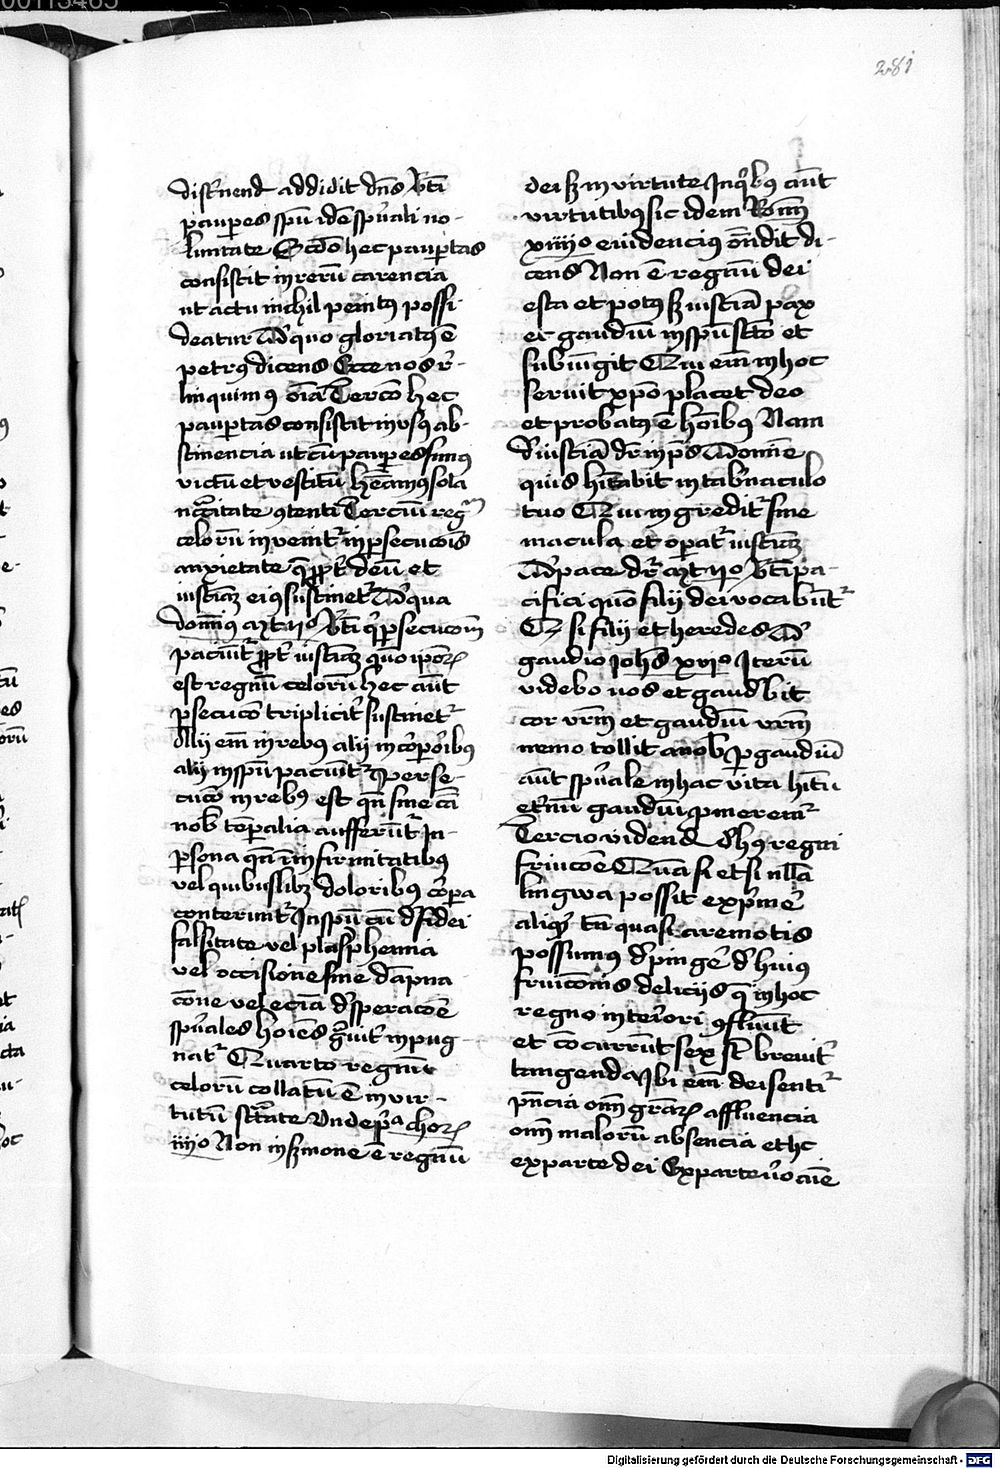 00113485
281
disc̄nend addidit dn̄s bt̄i
paup̲es sp̄u idē sp̄uali no-
luntate Scd̄o hec paup̲tas
consistit in rerū carencia
ut actu nichil penit9 possi-
deatur d̄ quo gloriat9 ē
petr9 dicens Ecce nos r̄-
linquim9 oīa Tercō hec
paup̲tas consistit in vs9 ab-
stinencia ut cū paup̲es sim9
victū et vestitū hēam9 sola
nc̄c̄itate 9tenti Terciū regm̄
celorū invenit᷑ in p̲secucōis
anxietate q̄ p̲pt᷑ deū et
iusticiā ei9 sustinet᷑ d̄ qua
domin9 mt᷑ v̊ bt̄i q̲ p̲secucōm̄
paciūt᷑ p̲pt᷑ iusticiā qm̄ ip̄oꝝ
est regnū celorū hec aūt
p̲secucō triplicit᷑ sustinet᷑
Alij em̄ in rebus alij in corp̲orib9
alij in sp̄u paciūt᷑ Perse-
cucō in reb9 est qn̄ sine cā
nob̄ tp̲alia aufferūt᷑ In
p̲sona qn̄ in infirmitatibus
vel quibuslibꝫ dolorib9 corp̲a
conterunt᷑ In sp̄u cū d̄ fidei
falsitate vel plasphemia
vel occisione sine dāpna
cōne vel eciā d̄speracōe
sp̄uales hoīes g̲uit᷑ inpug-
nat᷑ Quarto regnū
celorū collatū ē in vir-
tutū sct̄itate Vnde p̲ª choꝝ
iiij̊ Non in s̲mone ē regnū
dei sꝫ in virtute In q̲b9 aūt
virtutib9 sic idem Rom̄
xiiij̊ evidenci9 on̄dit di-
cens Non ē regnū dei
esca et pot9 sꝫ iusticia pax
et gaudiū in sp̄u sctō et
subiūgit Qui em̄ in hoc
servit xp̄o placet deo
et probat9 ē hoīb9 Nam
d̄ iusticia dr̄ in ps̄ Domine
quis hītabit in tab̄naculo
tuo Qui ingredit᷑ sine
macula et op̲at᷑ iusticiā
D̄ pace dr̄ mt᷑ v̊ bt̄i pa-
cifici quō filij dei vocabūt᷑
Qꝫ si filij et heredes D̄
gaudio Joh̄s xvi̊ Iterū
videbo vos et gaud̄bit
cor vrm̄ et gaudiū vrm̄
nemo tollit a nob̄ P̲ gaudiū
aūt sp̄uale in hac vita hītū
et̄nū gaudiū p̲merem᷑
Tercio vidend d̄ h9 regni
fruicōe Quā si etsi nlla
lingwa possit exp̲me᷑
aliq̲ tn̄ quasi a remotis
possum9 d̄pinge᷑ d̄ huius
fruicōnis delicijs q̄ in hoc
regno interiori 9fluūt
et cōcurrūt sex sꝫ brevit᷑
tangenda Ibi em̄ dei senti᷑
pn̄cia om̄ gr̄aꝝ affluencia
om̄ malorū absencia et hc
ex parte dei Ex parte v̊o aīe
Digitalisierung gefördert durch die Deutsche Forschungsgemeinschaft - DFG